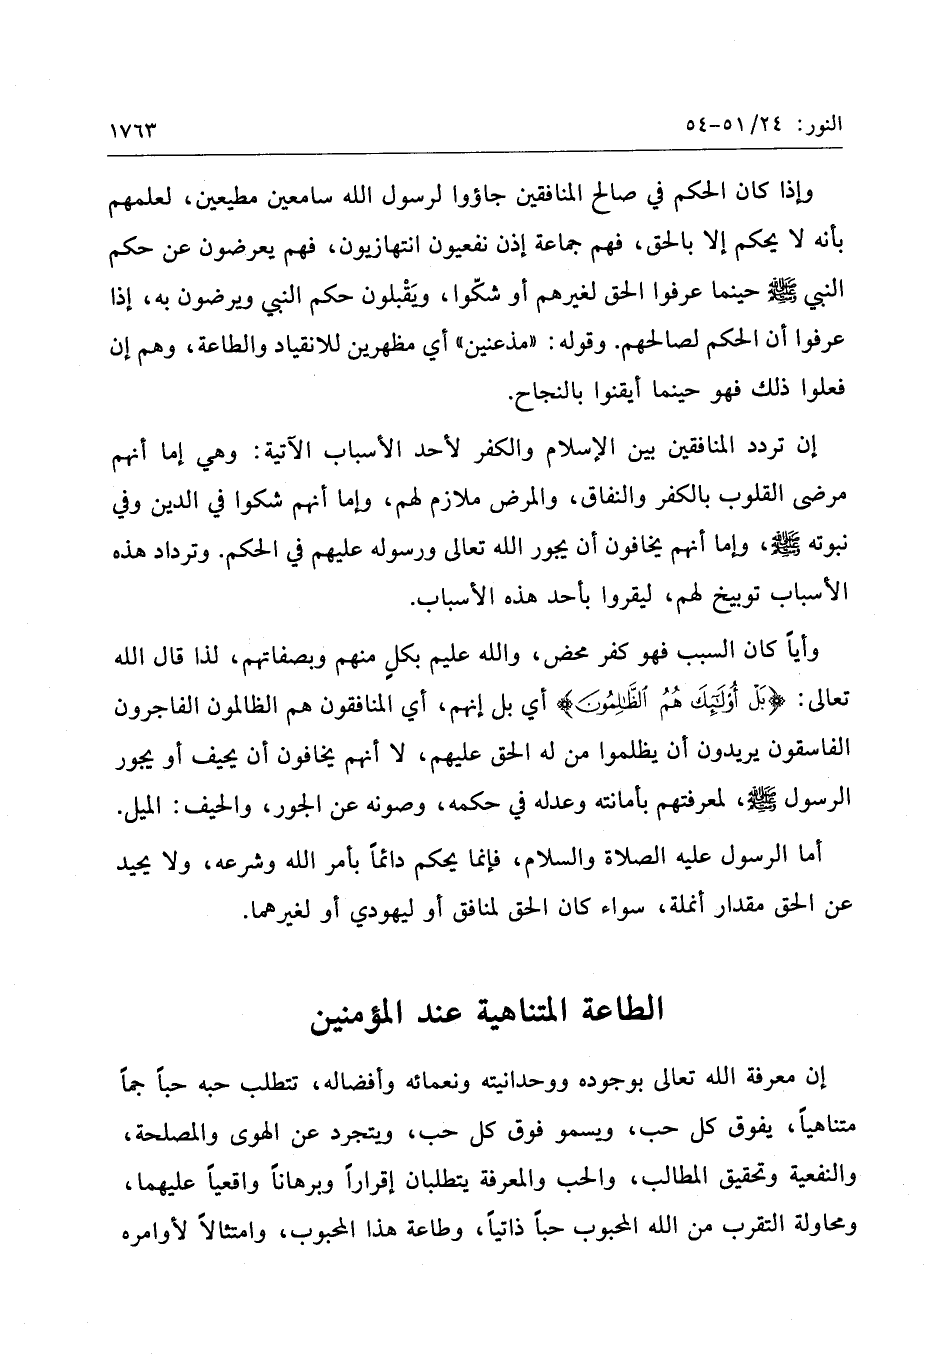 النور: ٢٤/ ٥١-٥٤
١٧٦٣
وإذا كان الحكم في صالح المنافقين جاؤوا لرسول الله سامعين مطيعين، لعلمهم
بأنه لا يحكم إلا بالحق، فهم جماعة إذن نفعيون انتهازيون، فهم يعرضون عن حكم
النبي ﷺ حينما عرفوا الحق لغيرهم أو شكّوا، ويَقْبلون حكم النبي ويرضون به، إذا
عرفوا أن الحكم لصالحهم. وقوله: «مذعنين» أي مظهرين للانقياد والطاعة، وهم إن
فعلوا ذلك فهو حينما أيقنوا بالنجاح.
إن تردد المنافقين بين الإسلام والكفر لأحد الأسباب الآتية: وهي إما أنهم
مرضى القلوب بالكفر والنفاق، والمرض ملازم لهم، وإما أنهم شكوا في الدين وفي
نبوته ﷺ، وإما أنهم يخافون أن يجور الله تعالى ورسوله عليهم في الحكم. وترداد هذه
الأسباب توبيخ لهم، ليقروا بأحد هذه الأسباب.
وأياً كان السبب فهو كفر محض، والله عليم بكلٍ منهم وبصفاتهم، لذا قال الله
تعالى: ﴿بَلْ أُوْلَٰٓئِكَ هُمُ ٱلظَّٰلِمُونَ﴾ أي بل إنهم، أي المنافقون هم الظالمون الفاجرون
الفاسقون يريدون أن يظلموا من له الحق عليهم، لا أنهم يخافون أن يحيف أو يجور
الرسول ﷺ، لمعرفتهم بأمانته وعدله في حكمه، وصونه عن الجور، والحيف: الميل.
أما الرسول عليه الصلاة والسلام، فإنما يحكم دائماً بأمر الله وشرعه، ولا يحيد
عن الحق مقدار أنملة، سواء كان الحق لمنافق أو ليهودي أو لغيرهما.
الطاعة المتناهية عند المؤمنين
إن معرفة الله تعالى بوجوده ووحدانيته ونعمائه وأفضاله، تتطلب حبه حباً جماً
متناهياً، يفوق كل حب، ويسمو فوق كل حب، ويتجرد عن الهوى والمصلحة،
والنفعية وتحقيق المطالب، والحب والمعرفة يتطلبان إقراراً وبرهاناً واقعياً عليهما،
ومحاولة التقرب من الله المحبوب حباً ذاتياً، وطاعة هذا المحبوب، وامتثالاً لأوامره